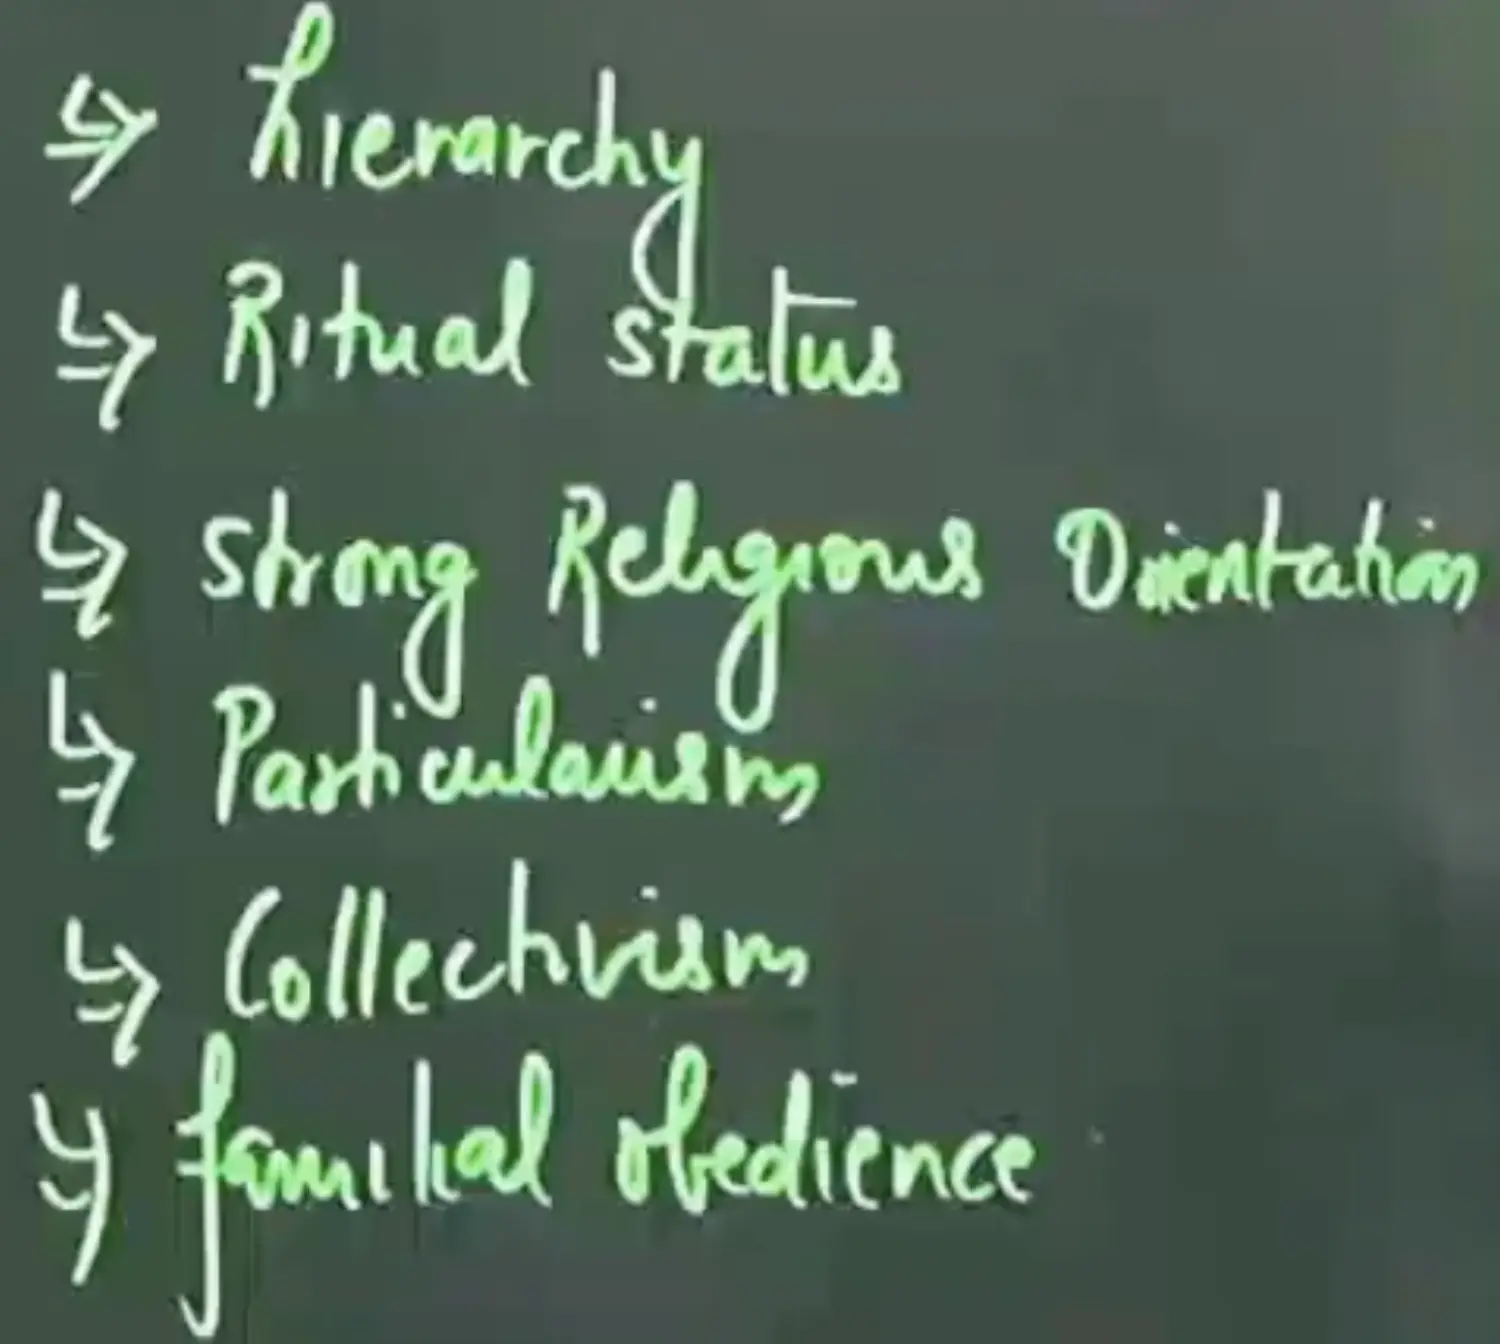 ⇒ hierarchy
⇒ Ritual status
⇒ Strong Religious Orientation
⇒ Particularism
⇒ Collectivism
⇒ familial obedience